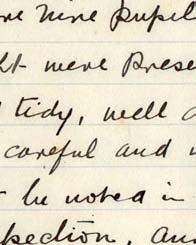 nine pupils
were prese
tidy, well
careful and
be noted in
pection, an